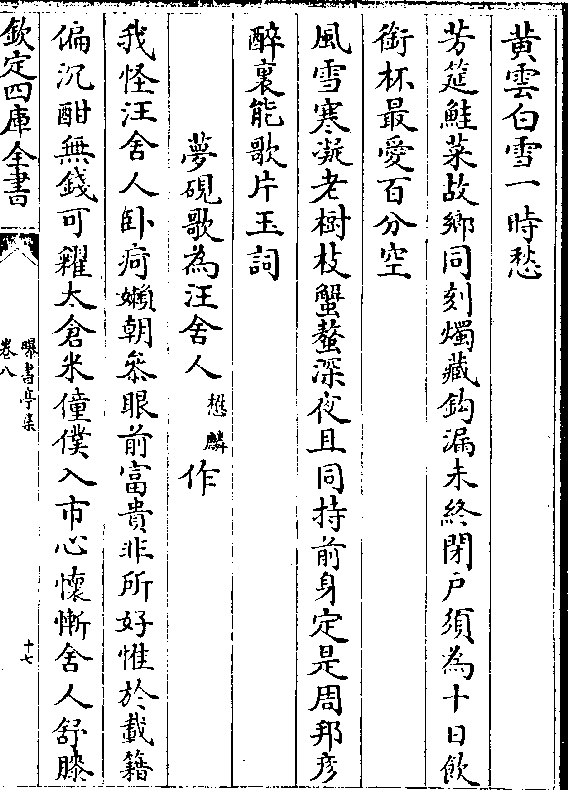 黄雲白雪一時愁
芳筵鮭菜故鄉同刻燭藏鈎漏未終閉户須為十日飲
銜杯最愛百分空
風雪寒凝老樹枝蟹螯深夜且同持前身定是周邦彦
醉裏能歌片玉詞
夢硯歌為汪舍人懋麟作
我怪汪舍人卧疴嬾朝叅眼前富貴非所好惟於載籍
偏沉酣無錢可糴太倉米僮僕入市心懷慚舍人舒膝
欽定四庫全書
曝書亭集
卷八
十七